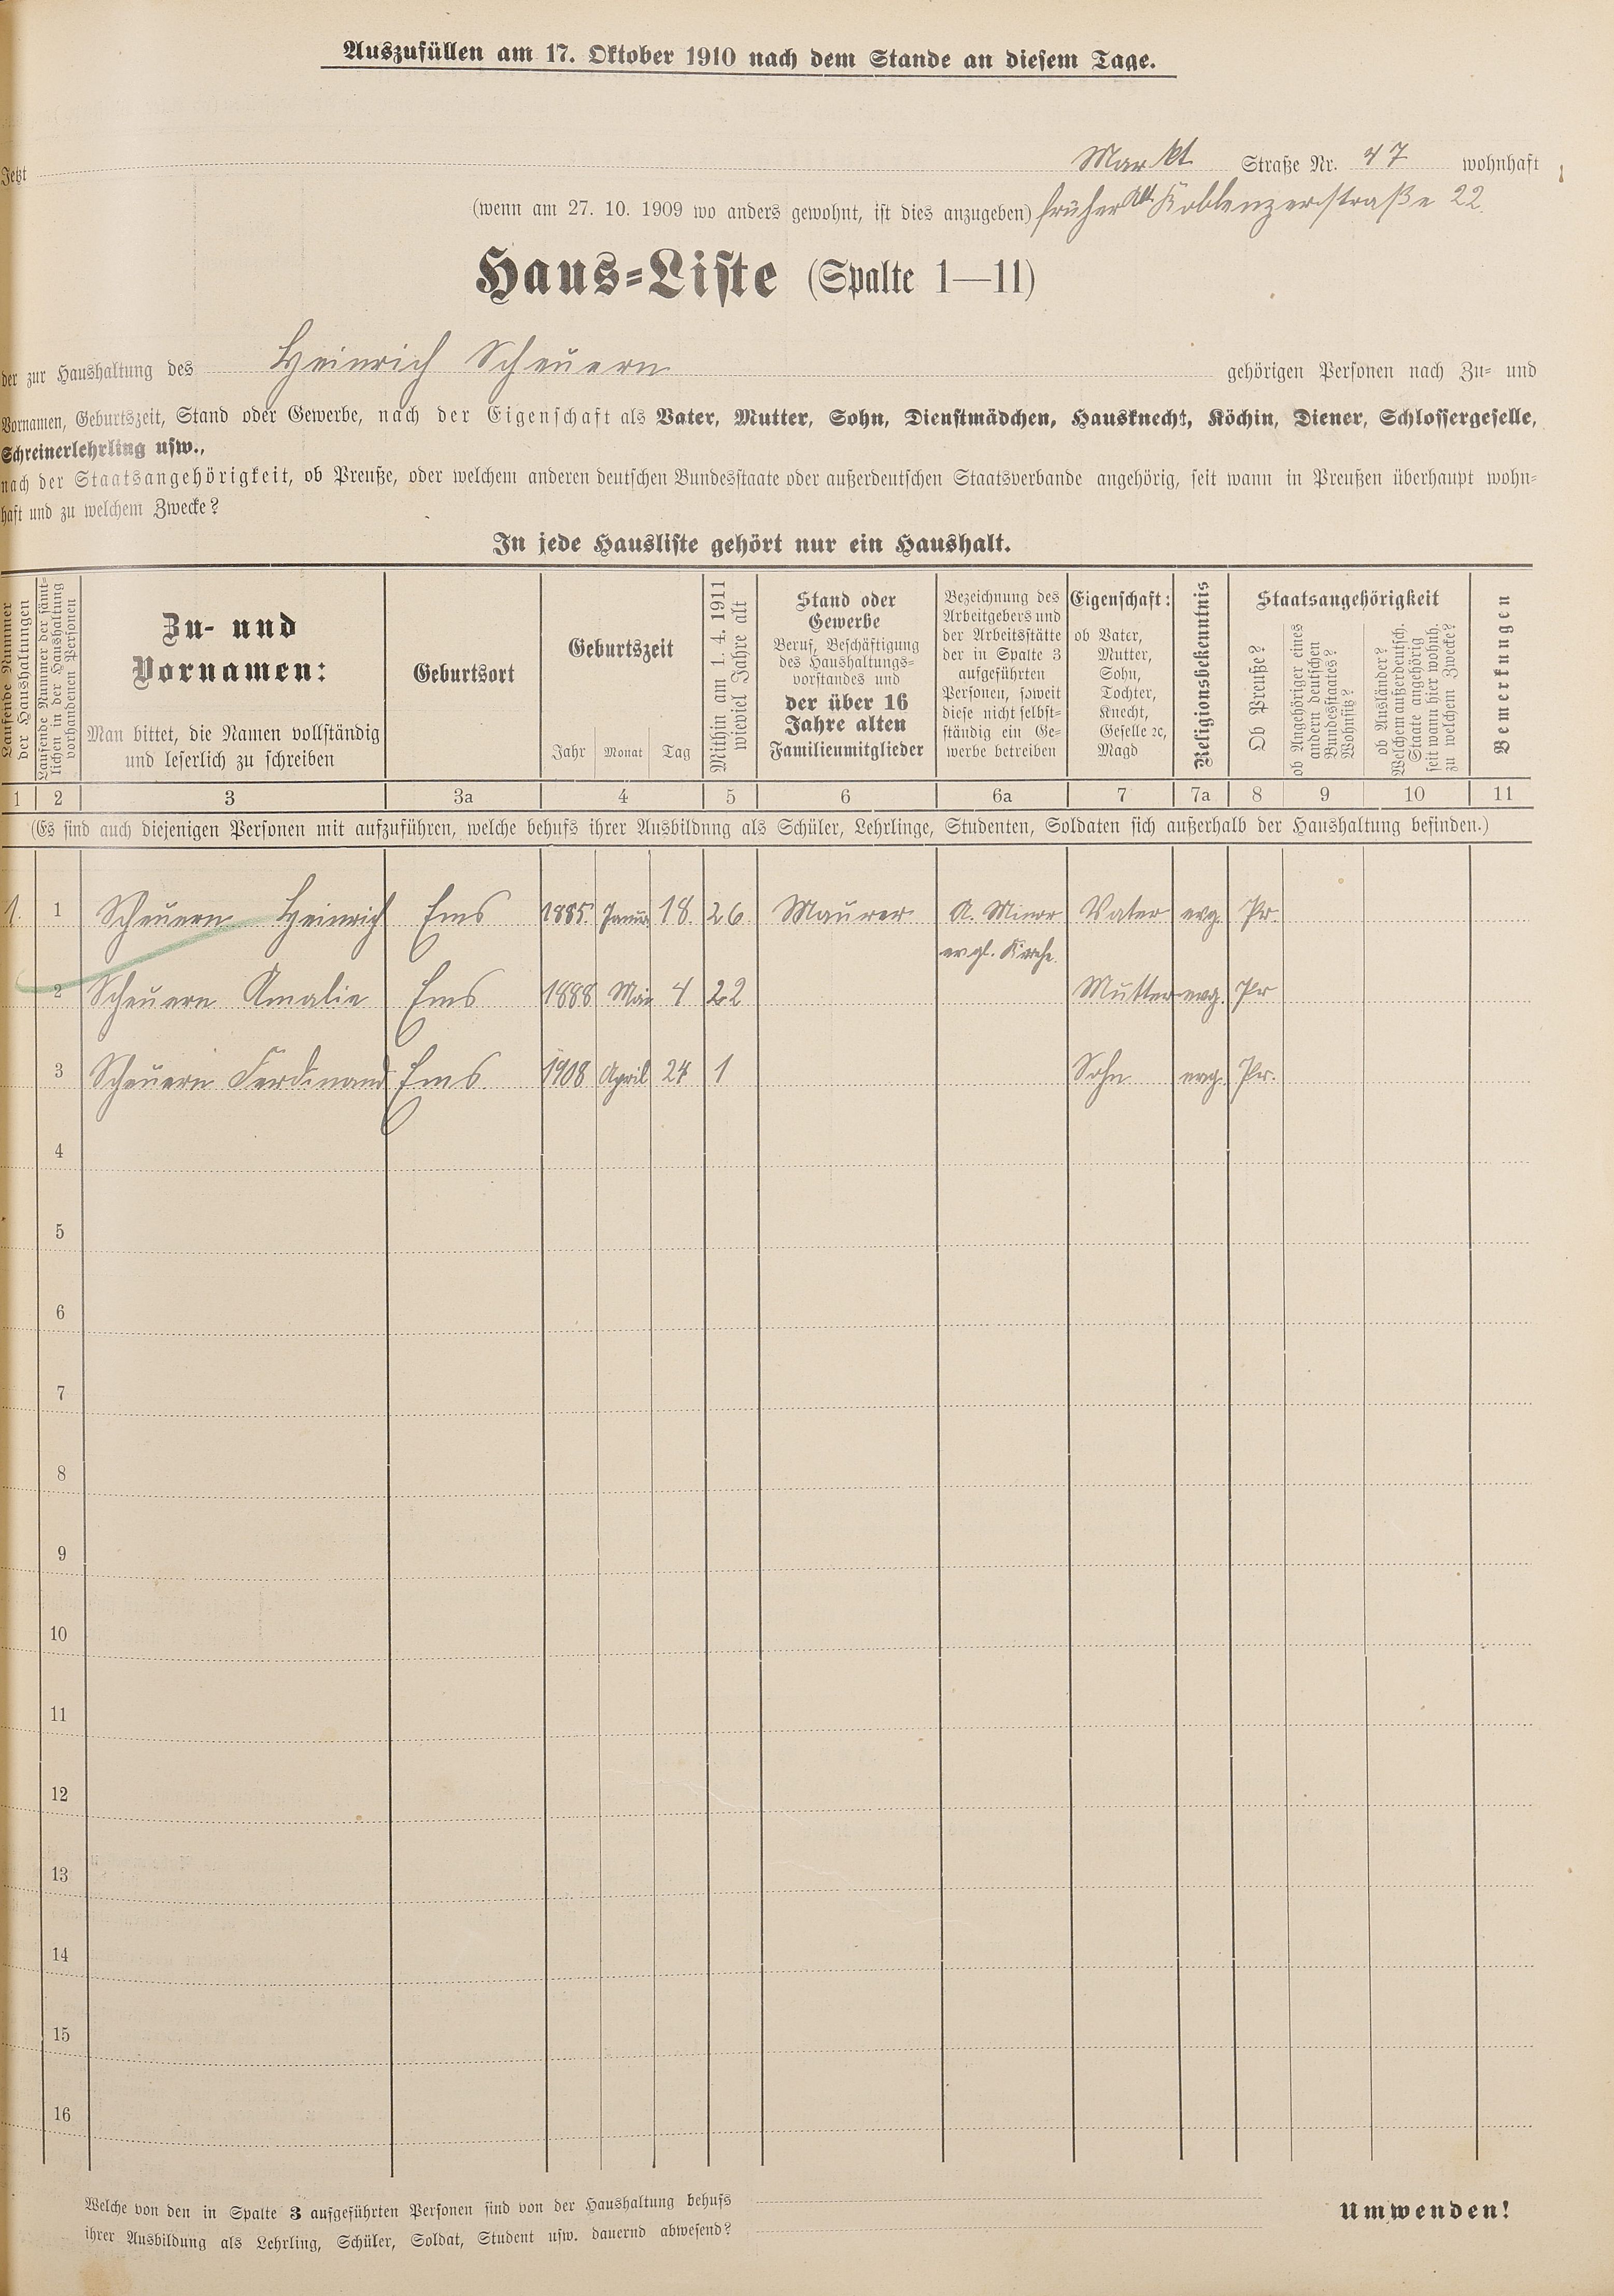 Auszufüllen am 17. Oktober 1910 nach dem Stande an diesem Tage.
Jetzt Markt Straße Nr. 47 wohnhaft
(wenn am 27. 10. 1909 wo anders gewohnt, ist dies anzugeben) früher Koblenzerstraße 22.
Haus-Liste (Spalte 1—11)
der zur Haushaltung des Heinrich Scheuern gehörigen Personen nach Zu- und
Vornamen, Geburtszeit, Stand oder Gewerbe, nach der Eigenschaft als Vater, Mutter, Sohn, Dienstmädchen, Hausknecht, Köchin, Diener, Schlossergeselle,
Schreinerlehrling usw.,
nach der Staatsangehörigkeit, ob Preuße, oder welchem anderen deutschen Bundesstaate oder außerdeutschen Staatsverbande angehörig, seit wann in Preußen überhaupt wohn-
haft und zu welchem Zwecke?
In jede Hausliste gehört nur ein Haushalt.
Laufende Nummer
der Haushaltungen
Laufende Nummer der sämt-
lichen in der Haushaltung
vorhandenen Personen
Zu- und
Vornamen:
Man bittet, die Namen vollständig
und leserlich zu schreiben
Geburtsort
Geburtszeit
Jahr Monat Tag
Mithin am 1. 4. 1911
wieviel Jahre alt
Stand oder
Gewerbe
Beruf, Beschäftigung
des Haushaltungs-
vorstandes und
der über 16
Jahre alten
Familienmitglieder
Bezeichnung des
Arbeitgebers und
der Arbeitsstätte
der in Spalte 3
aufgeführten
Personen, soweit
diese nicht selbst-
ständig ein Ge-
werbe betreiben
Eigenschaft:
ob Vater,
Mutter,
Sohn,
Tochter,
Knecht,
Geselle ꝛc,
Magd
Religionsbekenntnis
Staatsangehörigkeit
Ob Preuße?
ob Angehöriger eines
andern deutschen
Bundesstaates?
Wohnsitz?
ob Ausländer?
Welchem außerdeutsch.
Staate angehörig
seit wann hier wohnh.
zu welchem Zwecke?
Bemerkungen
1 2 3 3a 4 5 6 6a 7 7a 8 9 10 11
(Es sind auch diejenigen Personen mit aufzuführen, welche behufs ihrer Ausbildung als Schüler, Lehrlinge, Studenten, Soldaten sich außerhalb der Haushaltung befinden.)
1. 1 Scheuern Heinrich Ems 1885 Januar 18. 26 Maurer A. Minor Vater evg. Pr.
evgl. Kirche.
2 Scheuern Amalie Ems 1888 Mai 4 22 Mutter evg. Pr
3 Scheuern Ferdinand Ems 1908 April 24 1 Sohn evg. Pr.
4
5
6
7
8
9
10
11
12
13
14
15
16
Welche von den in Spalte 3 aufgeführten Personen sind von der Haushaltung behufs
ihrer Ausbildung als Lehrling, Schüler, Soldat, Student usw. dauernd abwesend?
Umwenden!